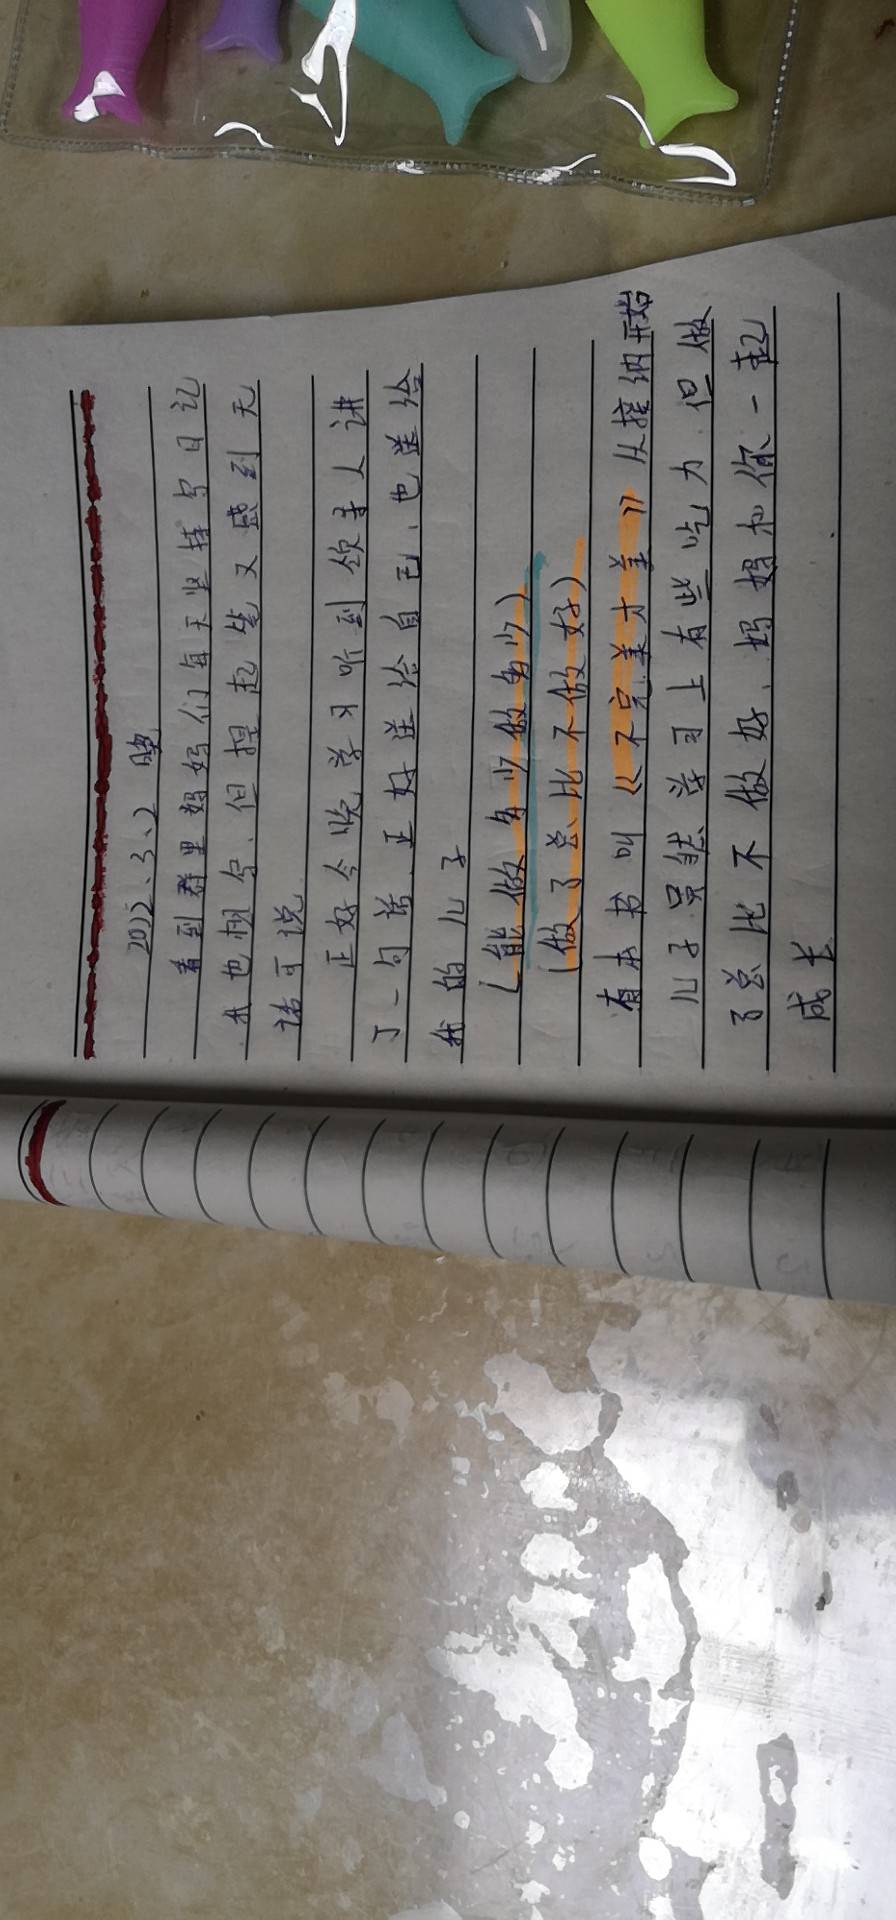 2022.3.2 晚
看到群里妈妈们每天坚持写日记
我也想写、但提起笔又感到无
话可说
正好今晚学习听到领季人讲
了一句话、正好送给自己、也送给
我的儿子
（能做多少做多少）
（做了总比不做好）
有本书叫《不完美才美》从接纳开始
儿子虽然学习上有些吃力、但做
了总比不做好、妈妈和你一起
成长